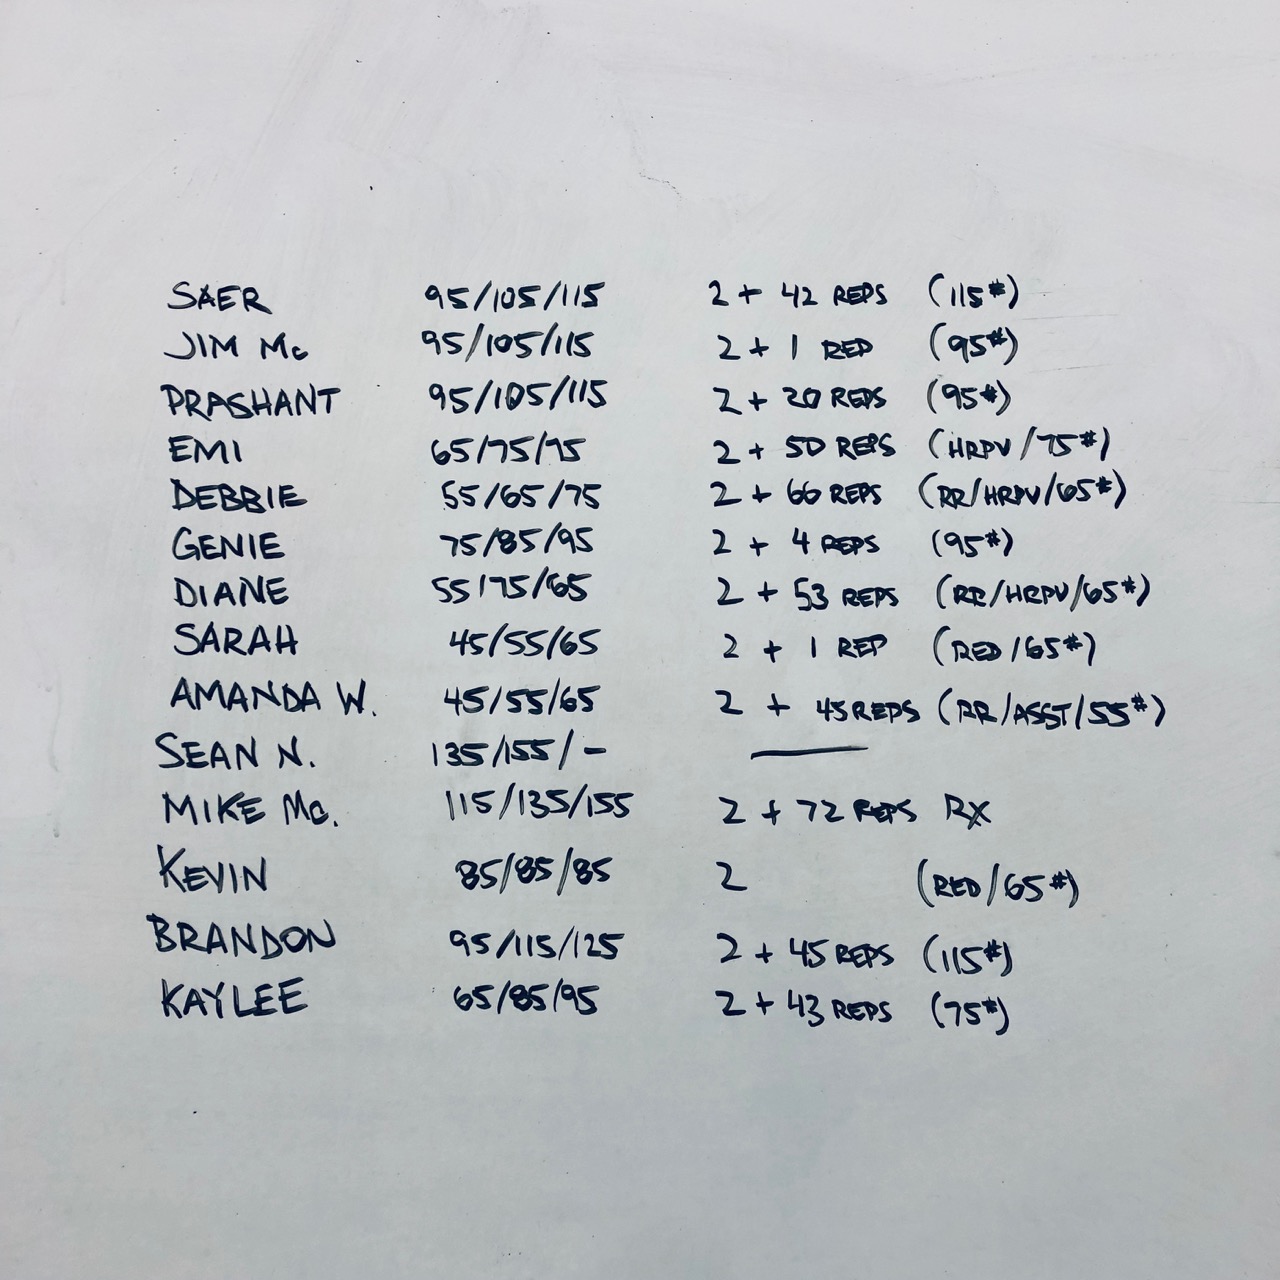 SAER 95/105/115 2 + 42 REPS (115#)
JIM Mc 95/105/115 2 + 1 REP (95#)
PRASHANT 95/105/115 2 + 20 REPS (95#)
EMI 65/75/75 2 + 50 REPS (HRPU/75#)
DEBBIE 55/65/75 2 + 66 REPS (RR/HRPU/65#)
GENIE 75/85/95 2 + 4 REPS (95#)
DIANE 55/75/65 2 + 53 REPS (RR/HRPU/65#)
SARAH 45/55/65 2 + 1 REP (RED/65#)
AMANDA W. 45/55/65 2 + 45 REPS (RR/ASST/55#)
SEAN N. 135/155/- —
MIKE Mc. 115/135/155 2 + 72 REPS RX
KEVIN 85/85/85 2 (RED/65#)
BRANDON 95/115/125 2 + 45 REPS (115#)
KAYLEE 65/85/95 2 + 43 REPS (75#)